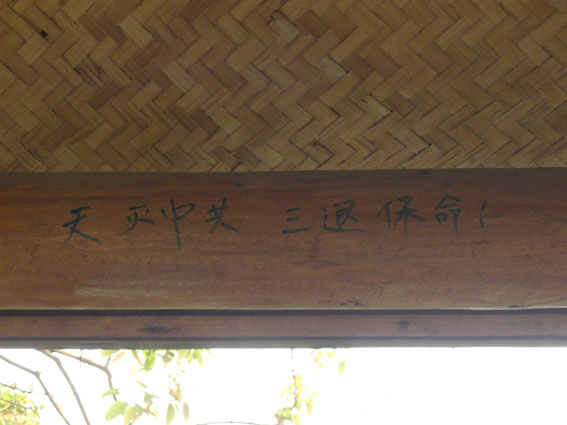 天灭中共 三退保命!